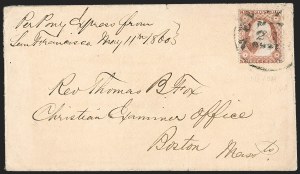 Per Pony Express from
San Francisco May 11th 1860
Rev Thomas B Fox
Christian Examiner Office
Boston
Masstts